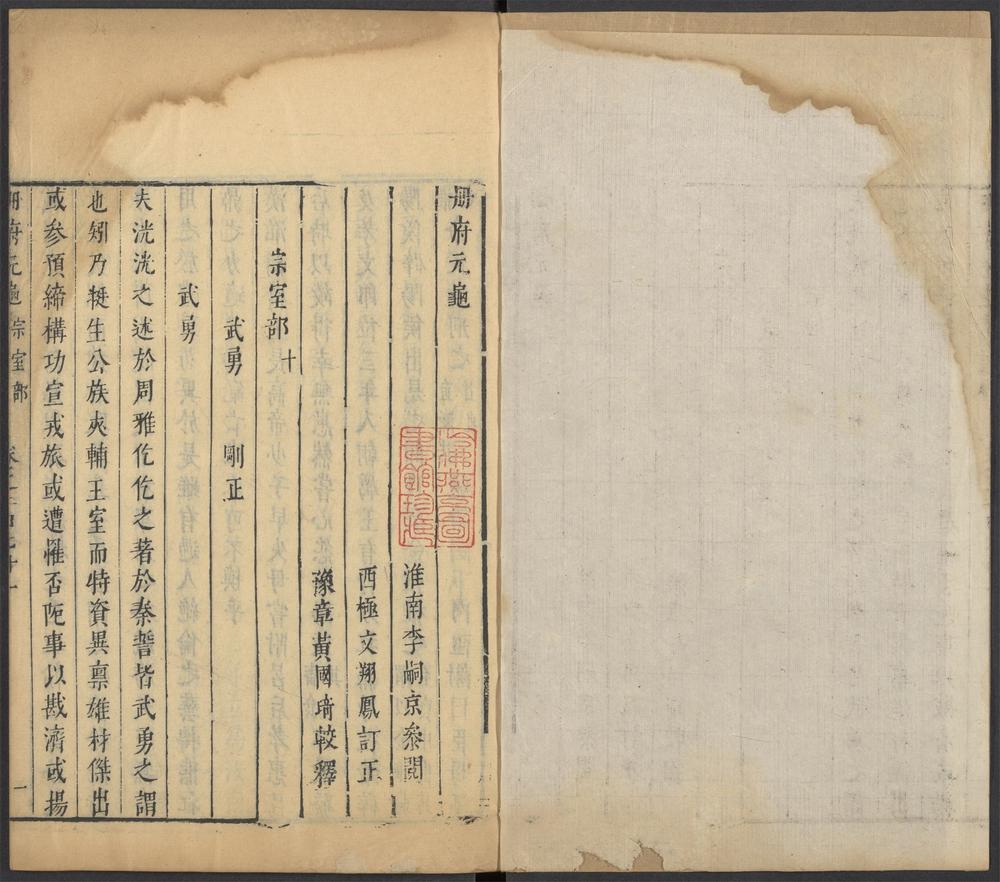 册府元龜
淮南李嗣京叅閱
西極文翔鳳訂正
豫章黃國琦較釋
宗室部 十
武勇 剛正
武勇
夫洸洸之述於周雅仡仡之著於秦誓皆武勇之謂
也矧乃挺生公族夾輔王室而特資異禀雄材傑出
或參預締構功宣戎旅或遭惟否阨事以戡濟或揚
册府元龜 宗室部
一
哈佛燕京圖
書館珍藏